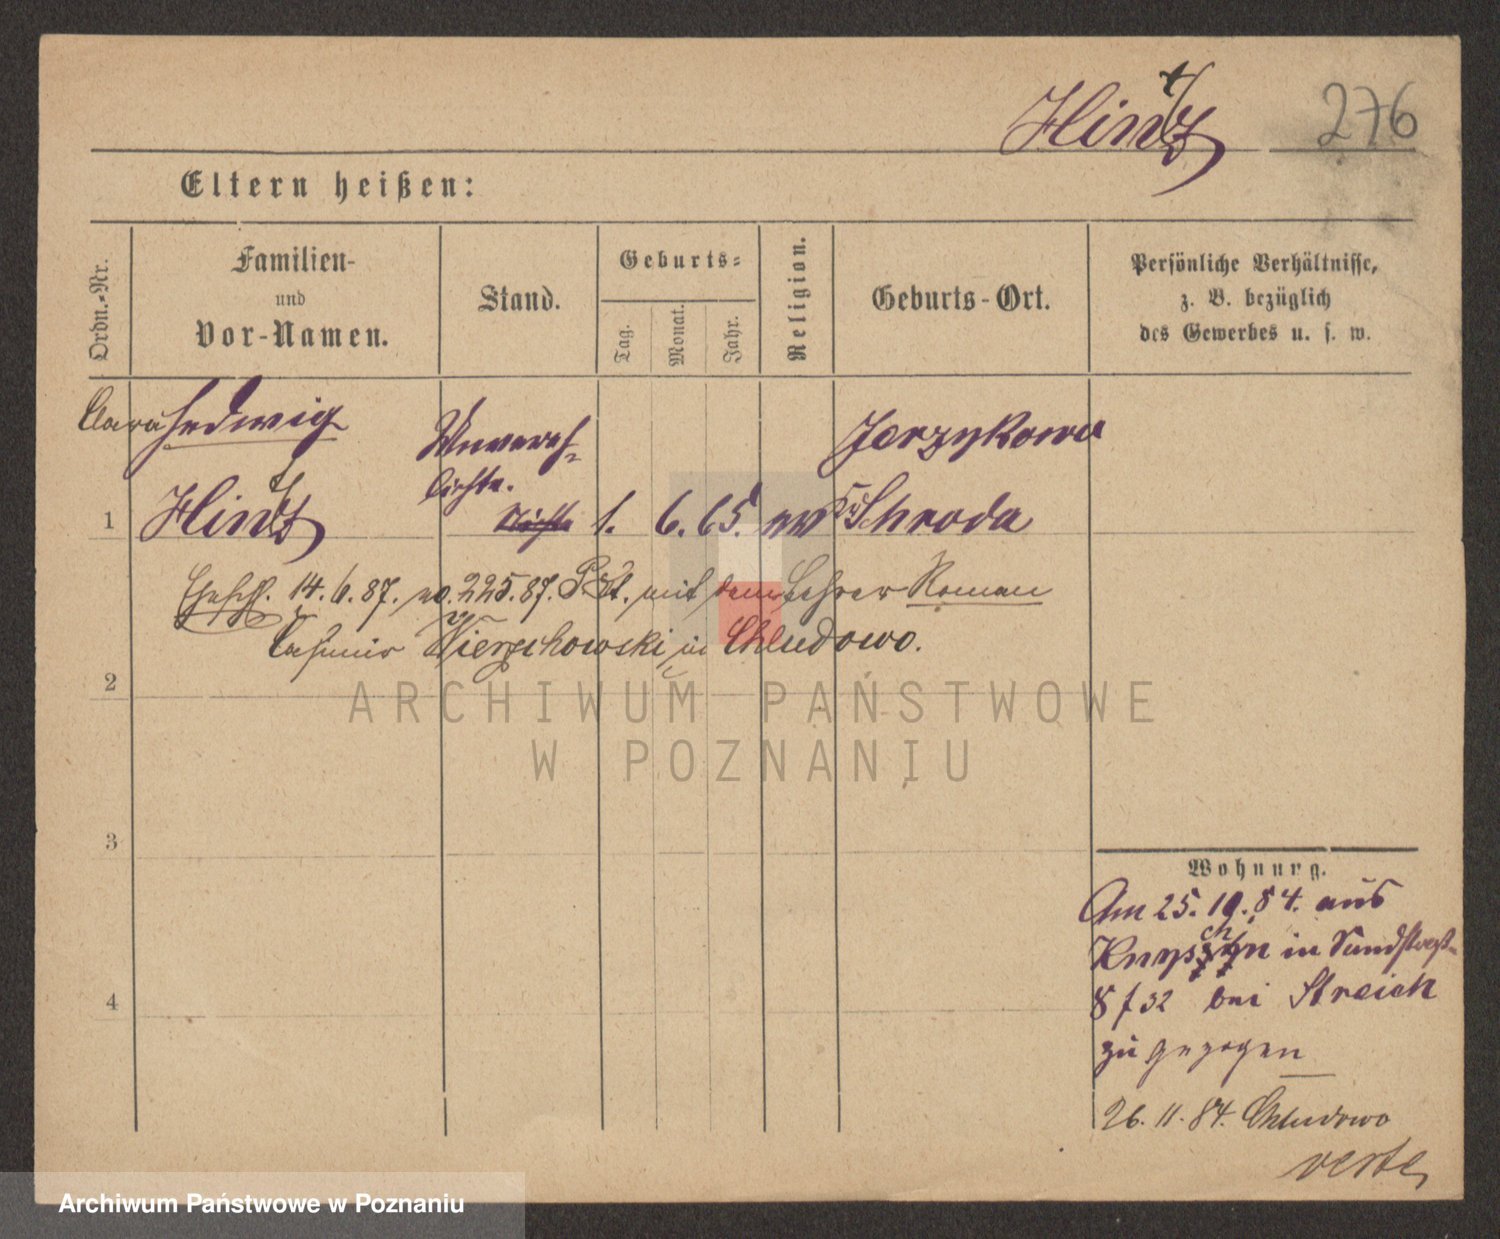 Hintz 276
Eltern heißen:
Ordn.-Nr.
Familien-
und
Vor-Namen.
Stand.
Geburts-
Tag.
Monat.
Jahr.
Religion.
Geburts-Ort.
Persönliche Verhältnisse,
z. B. bezüglich
des Gewerbes u. s. w.
Clara Hedwig
Hintz
Unvereh-
lichte.
1 1. 6. 65. Jerzykowo
Schroda
14. 6. 87. no. 225.87. mit dem Lehrer Roman
Casimir Wierzchowski in Chludowo.
2
ARCHIWUM PAŃSTWOWE
W POZNANIU
3
Wohnung.
Am 25. 10. 84. aus
in Sandstraß
8 f 32 bei Streich
zu gezogen
4
26. 11. 84. Chludowo
verte
Archiwum Państwowe w Poznaniu